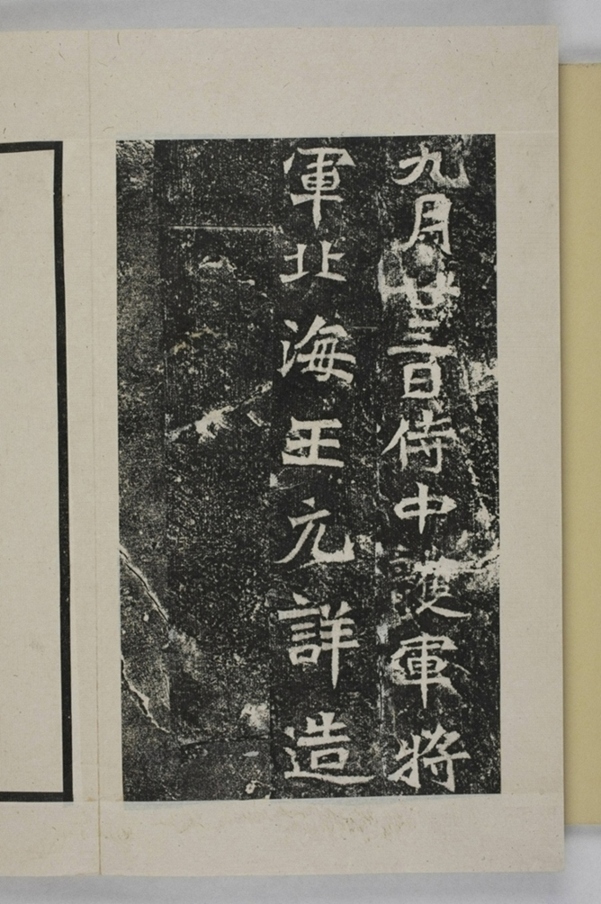 九月廿三日侍中護軍將
軍北海王元詳造